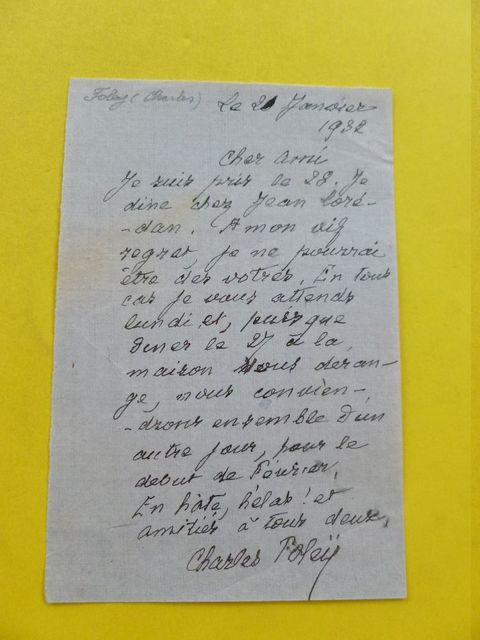 Foleÿ (Charles)
Le 21 Janvier
1932
Cher Ami
Je suis pris le 28. Je
dine chez Jean Loré-
-dan. A mon vif
regret, je ne pourrai
être des vôtres. En tous
cas je vous attends
lundi et, puisque
diner le 27 à la
maison vous déran-
ge, nous convien-
-drons ensemble d'un
autre jour, pour le
début de Février.
En hâte, hélas! et
amitiés à tous deux,
Charles Foleÿ